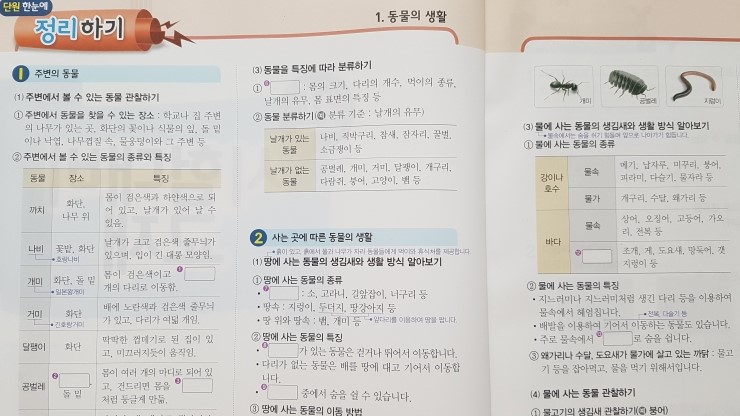 단원 한눈에
정리하기
1. 동물의 생활
1 주변의 동물
(1) 주변에서 볼 수 있는 동물 관찰하기
① 주변에서 동물을 찾을 수 있는 장소 : 학교나 집 주변
의 나무가 있는 곳, 화단의 꽃이나 식물의 잎, 돌 밑
이나 낙엽, 나무껍질 속, 물웅덩이와 그 주변 등
② 주변에서 볼 수 있는 동물의 종류와 특징
동물 장소 특징
까치 화단, 나무 위 몸이 검은색과 하얀색으로 되
어 있고, 날개가 있어 날 수
있음.
나비 꽃밭, 화단 날개가 크고 검은색 줄무늬가
있으며, 입이 긴 대롱 모양임.
호랑나비
개미 화단, 돌 밑 몸이 검은색이고
개의 다리로 이동함.
일본왕개미
거미 화단 배에 노란색과 검은색 줄무늬
가 있고, 다리가 여덟 개임.
긴호랑거미
달팽이 화단 딱딱한 껍데기로 된 집이 있
고, 미끄러지듯이 움직임.
공벌레 돌 밑 몸이 여러 개의 마디로 되어 있
고, 건드리면 몸을
처럼 둥글게 만듦.
(3) 동물을 특징에 따라 분류하기
① : 몸의 크기, 다리의 개수, 먹이의 종류,
날개의 유무, 몸 표면의 특징 등
② 동물 분류하기(예 분류 기준 : 날개의 유무)
날개가 있는 동물 나비, 직박구리, 참새, 잠자리, 꿀벌,
소금쟁이 등
날개가 없는 동물 공벌레, 개미, 거미, 달팽이, 개구리,
다람쥐, 붕어, 고양이, 뱀 등
2 사는 곳에 따른 동물의 생활
흙이 있고, 흙에서 풀과 나무가 자라 동물들에게 먹이와 휴식처를 제공합니다.
(1) 땅에 사는 동물의 생김새와 생활 방식 알아보기
① 땅에 사는 동물의 종류
• : 소, 고라니, 길앞잡이, 너구리 등
• 땅속 : 지렁이, 두더지, 땅강아지 등
• 땅 위와 땅속 : 뱀, 개미 등
앞다리를 이용하여 땅을 팝니다.
② 땅에 사는 동물의 특징
• 가 있는 동물은 걷거나 뛰어서 이동합니다.
• 다리가 없는 동물은 배를 땅에 대고 기어서 이동합
니다.
• 중에서 숨을 쉴 수 있습니다.
③ 땅에 사는 동물의 이동 방법
개미 공벌레 지렁이
(3) 물에 사는 동물의 생김새와 생활 방식 알아보기
① 물에 사는 동물의 종류
강이나 호수 물속 메기, 납자루, 미꾸리, 붕어,
피라미, 다슬기, 물자라 등
물가 개구리, 수달, 왜가리 등
바다 물속 상어, 오징어, 고등어, 가오
리, 전복 등
조개, 게, 도요새, 망둑어, 갯
지렁이 등
② 물에 사는 동물의 특징
• 지느러미나 지느러미처럼 생긴 다리 등을 이용하여
물속에서 헤엄칩니다.
전복, 다슬기 등
• 배발을 이용하여 기어서 이동하는 동물도 있습니다.
• 주로 물속에서 로 숨을 쉽니다.
③ 왜가리나 수달, 도요새가 물가에 살고 있는 까닭 : 물고
기 등을 잡아먹고, 물을 먹기 위해서입니다.
(4) 물에 사는 동물 관찰하기
① 물고기의 생김새 관찰하기(예 붕어)